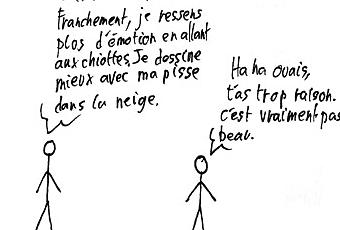 Franchement, je ressens
plus d'émotion en allant
aux chiottes. Je dessine
mieux avec ma pisse
dans la neige.
Ha ha ouais,
t'as trop raison.
c'est vraiment pas
beau.